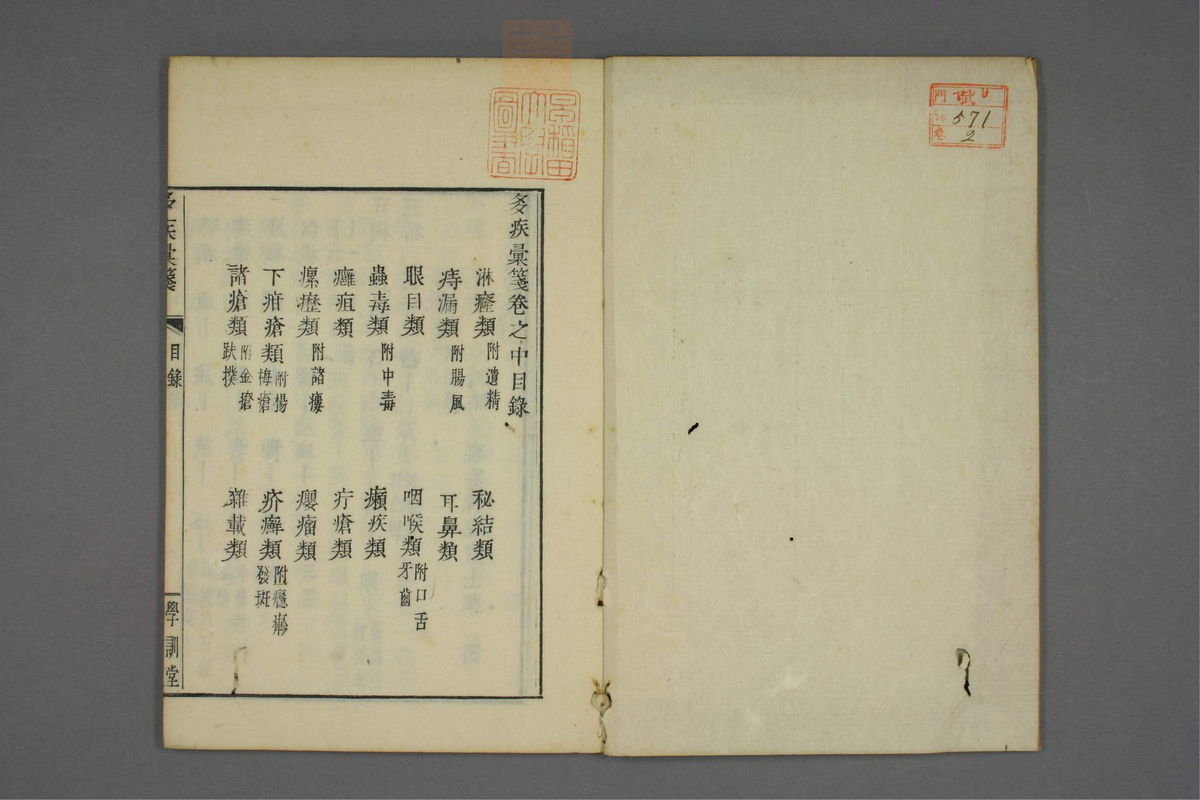 門 9
571
卷 2
早稲田
大學
圖書
夛疾彙箋卷之中目錄
淋癃類 附遺精 秘結類
痔漏類 附腸風 耳鼻類
眼目類 咽喉類 附口舌牙齒
蟲毒類 附中毒 癩疾類
癰疽類 疔瘡類
瘰癧類 附諸瘻 癭瘤類
下疳瘡類 附楊梅瘡 疥癬類 附癮疹發斑
諸瘡類 附金瘡趺撲 雜載類
夛疾彙箋 目錄 學訓堂